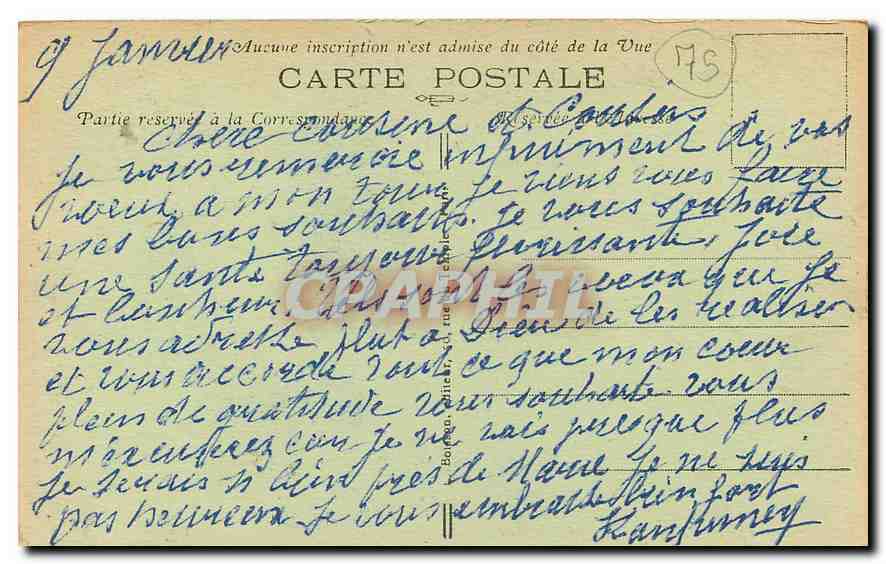 9 Janvier
Aucune inscription n'est admise du côté de la Vue
75
CARTE POSTALE
Partie réservée à la Correspondance
Réservée à l'Adresse
chère cousine et Cousins
Je vous remercie infiniment de vos
voeux a mon tour je viens vous faire
mes bons souhaits. Je vous souhaite
une santé toujours florissante, Joie
et bonheur, voeux que je
vous adresse plut a Dieu de les realiser
et vous accorde tout ce que mon coeur
plein de gratitude vous souhaite vous
m'excuserez car je ne vois presque plus
je serais si bien près de Marie je ne suis
pas heureux je vous embrasse bien fort
CRAPHIL